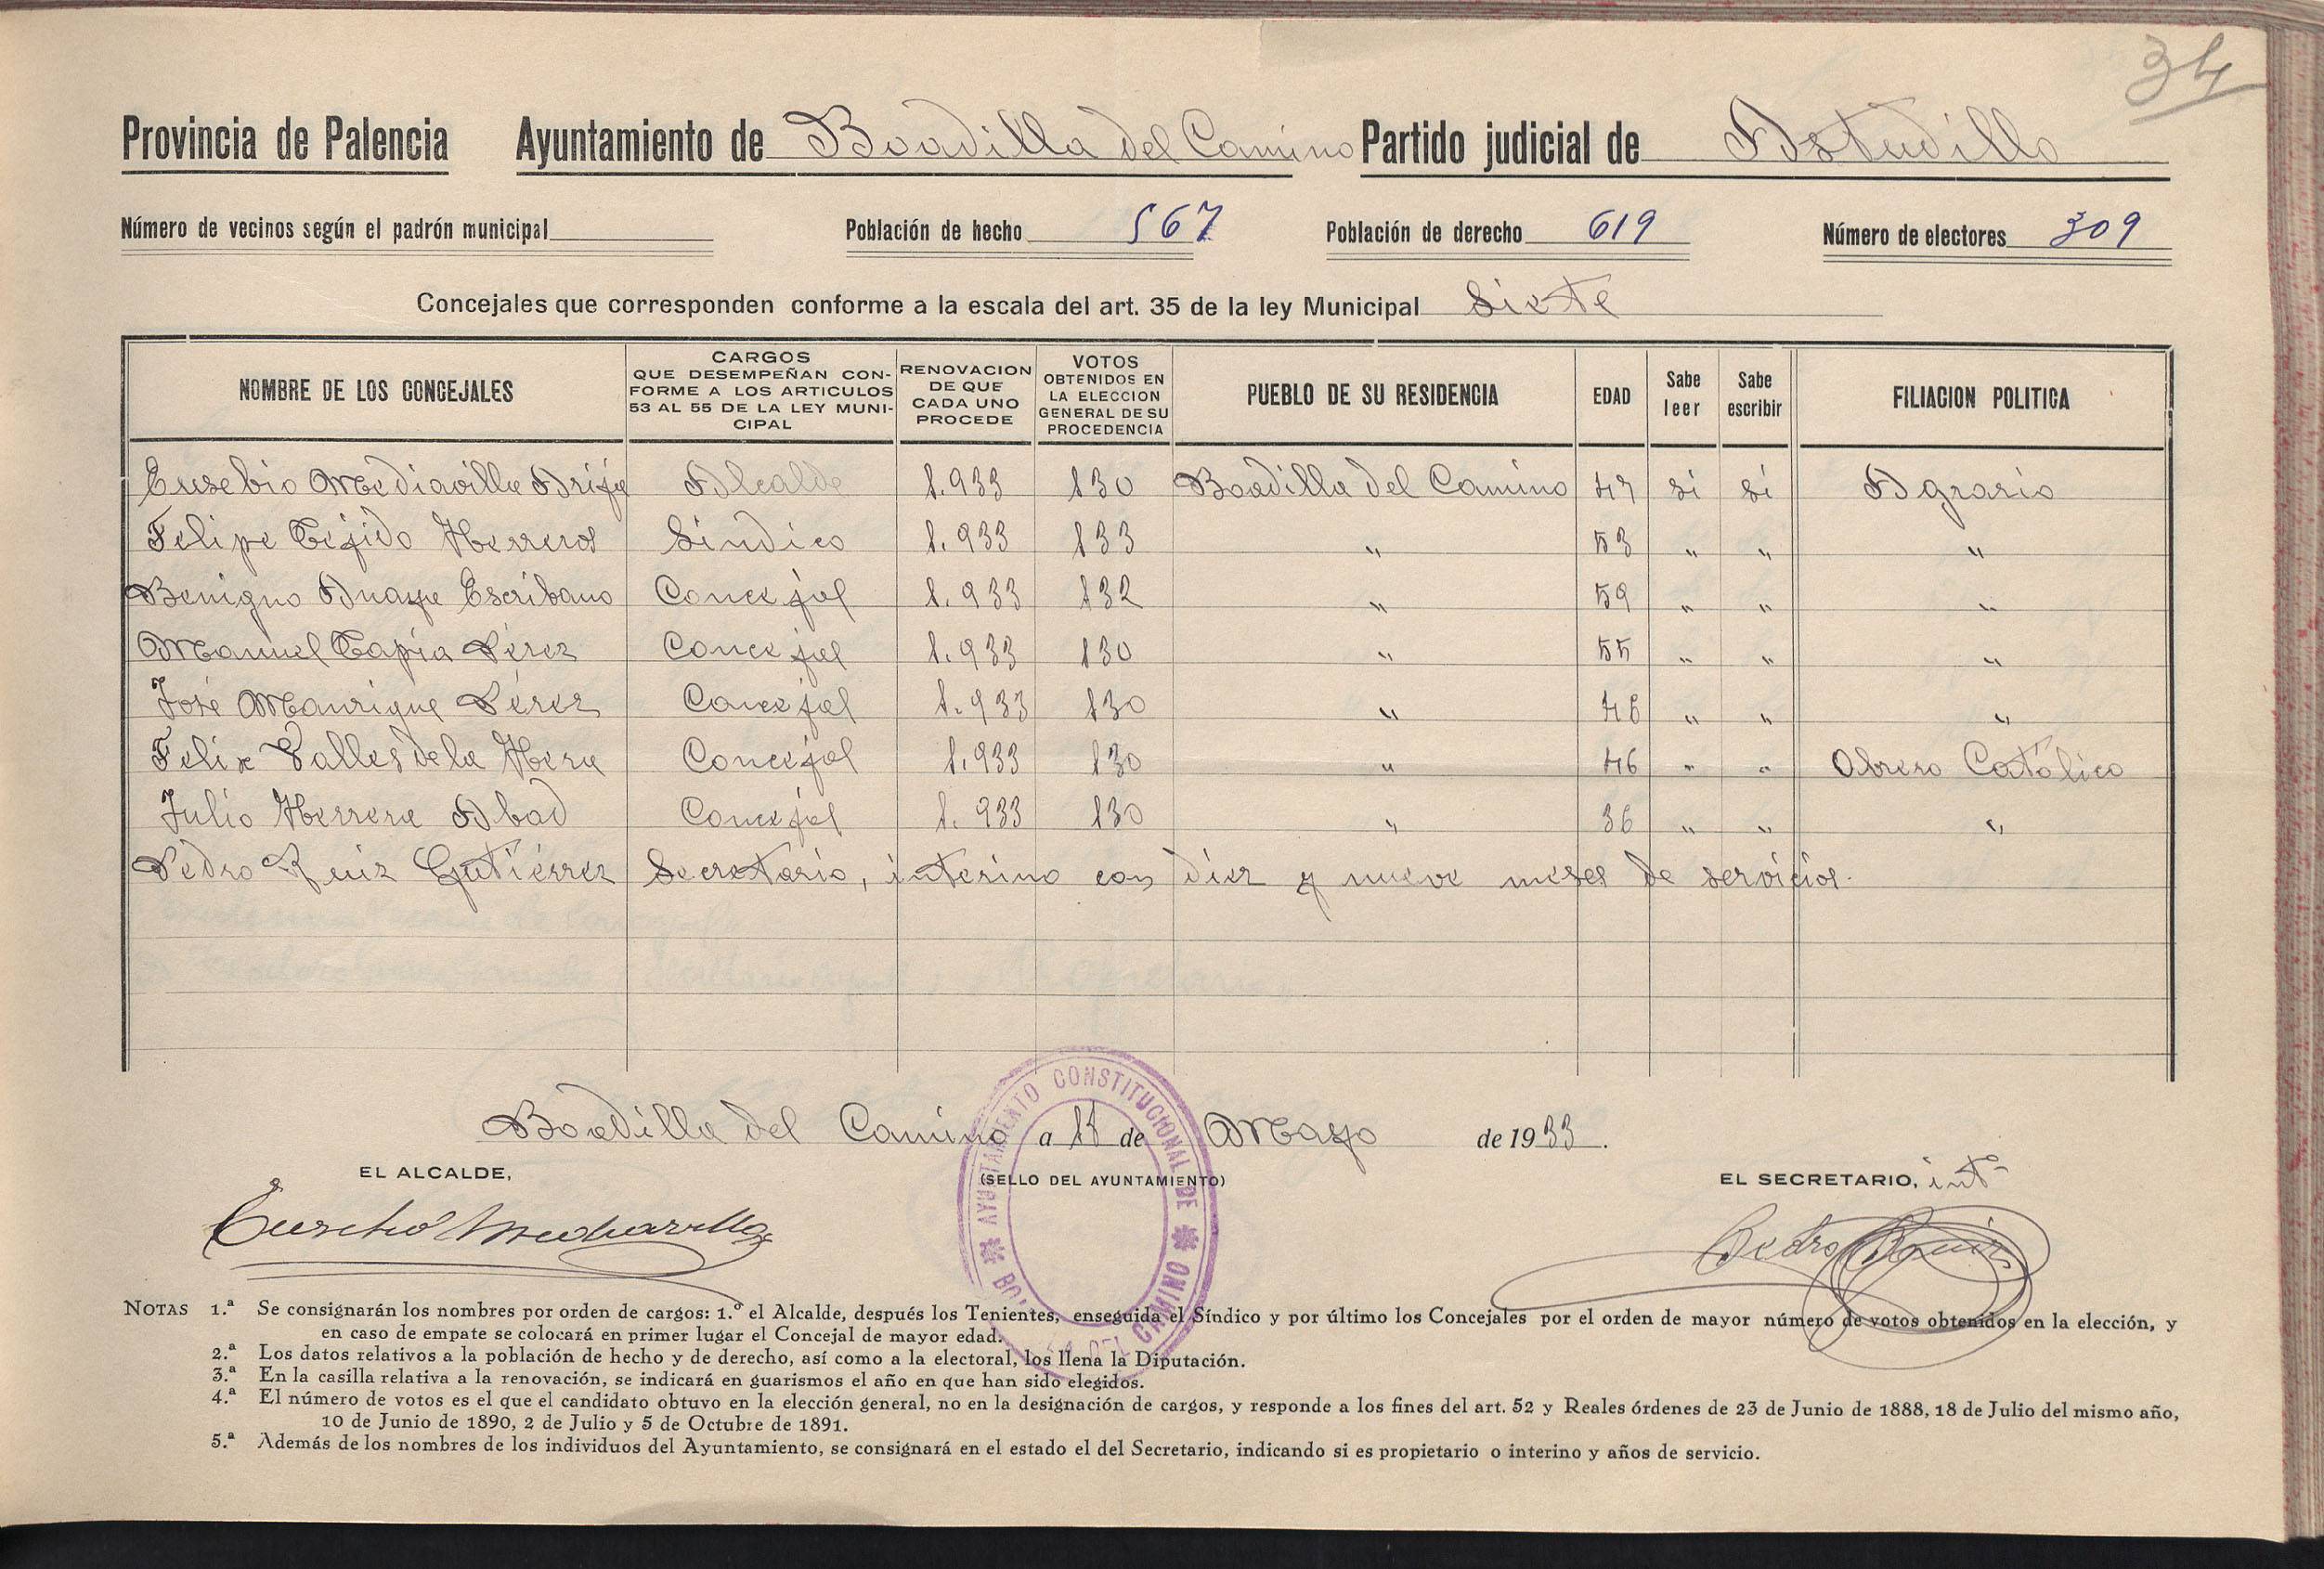 34
Provincia de Palencia Ayuntamiento de Boadilla del Camino Partido judicial de Astudillo
Número de vecinos según el padrón municipal Población de hecho 567 Población de derecho 619 Número de electores 309
Concejales que corresponden conforme a la escala del art. 35 de la ley Municipal Siete
NOMBRE DE LOS CONCEJALES CARGOS QUE DESEMPEÑAN CONFORME A LOS ARTICULOS 53 AL 55 DE LA LEY MUNICIPAL RENOVACION DE QUE CADA UNO PROCEDE VOTOS OBTENIDOS EN LA ELECCION GENERAL DE SU PROCEDENCIA PUEBLO DE SU RESIDENCIA EDAD Sabe leer Sabe escribir FILIACION POLITICA
Eusebio Mediavilla Alcalde 1.933 130 Boadilla del Camino 47 si si Agrario
Felipe Tejido Herreros Sindico 1.933 133 " 53 " " "
Benigno Anaya Escribano Concejal 1.933 132 " 59 " " "
Manuel Tapia Pérez Concejal 1.933 130 " 55 " " "
José Manrique Pérez Concejal 1.933 130 " " " "
Felix Valles de la Hera Concejal 1.933 130 " 46 " " Obrero Católico
Julio Herrera Abad Concejal 1.933 130 " 36 " " "
Pedro Ruiz Gutiérrez Secretario, interino con diez y nueve meses de servicios.
Boadilla del Camino a 11 de Mayo de 1933.
EL ALCALDE, (SELLO DEL AYUNTAMIENTO) EL SECRETARIO, intº
AYUNTAMIENTO CONSTITUCIONAL DE * BOADILLA DEL CAMINO *
Eusebio Mediavilla Pedro Ruiz
NOTAS 1.ª Se consignarán los nombres por orden de cargos: 1.º el Alcalde, después los Tenientes, enseguida el Síndico y por último los Concejales por el orden de mayor número de votos obtenidos en la elección, y
en caso de empate se colocará en primer lugar el Concejal de mayor edad.
2.ª Los datos relativos a la población de hecho y de derecho, así como a la electoral, los llena la Diputación.
3.ª En la casilla relativa a la renovación, se indicará en guarismos el año en que han sido elegidos.
4.ª El número de votos es el que el candidato obtuvo en la elección general, no en la designación de cargos, y responde a los fines del art. 52 y Reales órdenes de 23 de Junio de 1888, 18 de Julio del mismo año,
10 de Junio de 1890, 2 de Julio y 5 de Octubre de 1891.
5.ª Además de los nombres de los individuos del Ayuntamiento, se consignará en el estado el del Secretario, indicando si es propietario o interino y años de servicio.